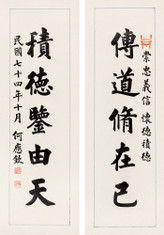 崇忠義信 懷德積德
傳道脩在己
積德鑒由天
民國七十四年十月 何應欽